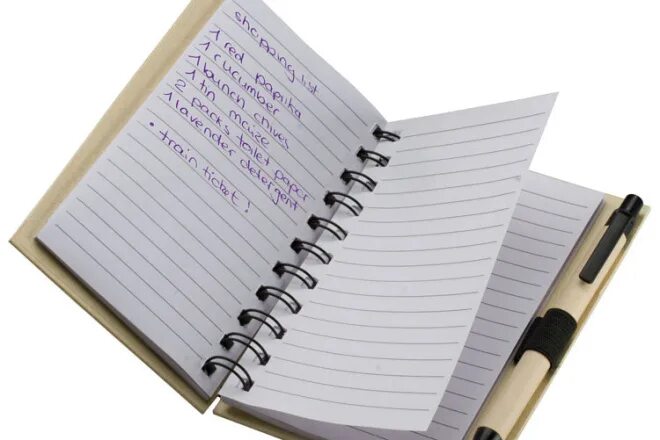 shopping list
1 red paprika
1 cucumber
1 bunch chives
1 tin maize
2 packs toilet paper
1 lavender detergent
• train ticket!